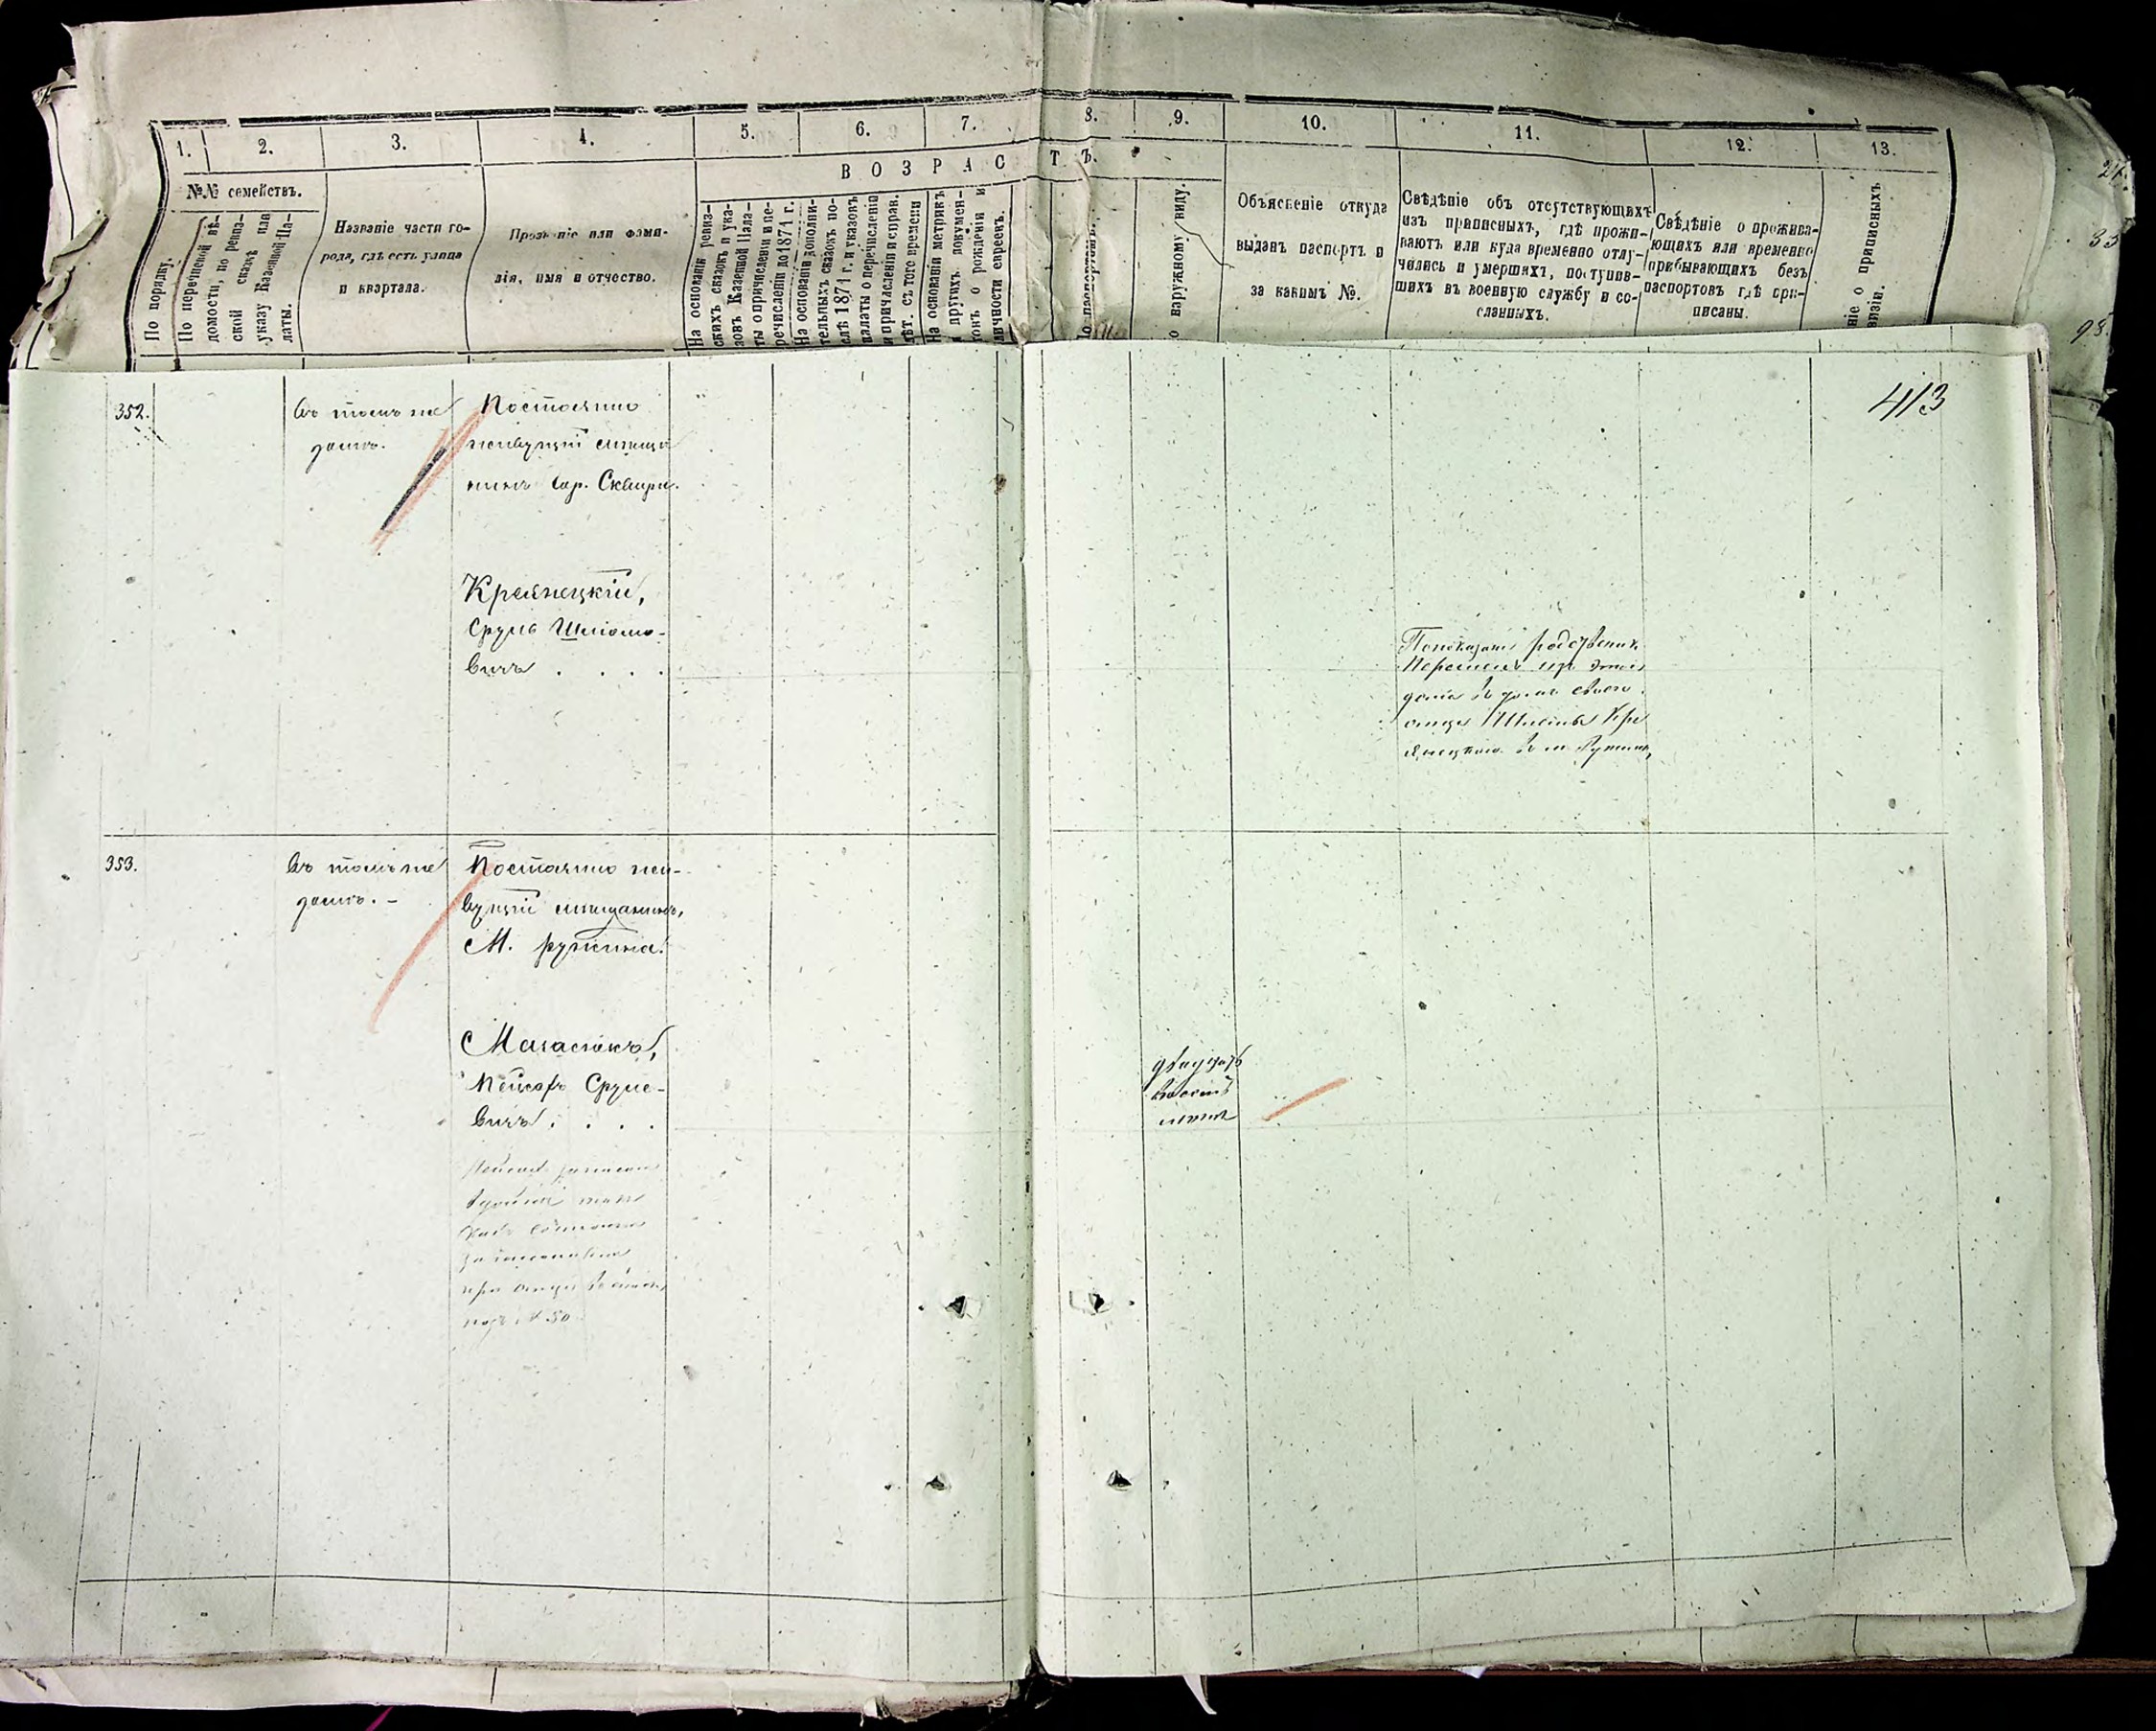 1. 2. 3. 4. 5. 6. 7. 8. 9. 10. 11. 12. 13.
№№ семействъ.
ВОЗРАСТЪ.
По порядку.
По перечневой вѣ-
домости, по ревиз-
ской сказкѣ или
указу Казенной Па-
латы.
Названіе части го-
рода, гдѣ есть улица
и квартала.
Прозваніе или фами-
лія, имя и отчество.
На основаніи ревиз-
скихъ сказокъ и ука-
зовъ Казенной Пала-
ты о причисленіи и пе-
речисленіи до 1874 г.
На основаніи дополни-
тельныхъ сказокъ по-
слѣ 1874 г. и указовъ
палаты о перечисленіи
и причисленіи и справ.
лѣт. съ того времени
На основаніи метрикъ
и другихъ докумен-
товъ о рожденіи и
личности евреевъ.
По паспортамъ.
по наружному виду.
Объясненіе откуда
выданъ паспортъ и
за какимъ №.
Свѣдѣніе объ отсутствующихъ
изъ приписныхъ, гдѣ прожи-
ваютъ или куда временно отлу-
чились и умершихъ, поступив-
шихъ въ военную службу и со-
сланныхъ.
Свѣдѣніе о прожива-
ющихъ или временно
прибывающихъ безъ
паспортовъ гдѣ при-
писаны.
ніе о приписныхъ
413
352.
Въ томъ же
домѣ.
Постоянно
живущій мѣща
нинъ гор. Сквири.
Креянецкій,
Сруль Шліомо-
вичъ . . . .
родствен.
Перешелъ изъ этого
дома въ домъ своего
отца Шліомы Кре
янецкаго въ м. Ружинѣ,
353.
Въ томъ же
домѣ. -
Постоянно жи-
вущій мѣщанинъ,
М. Ружина.
Маласюкъ,
Пейсахъ Сруле-
вичъ . . . .
двадцать
восемь
лѣтъ
Пейсахъ записанъ
такъ
какъ
при отцѣ
подъ № 50